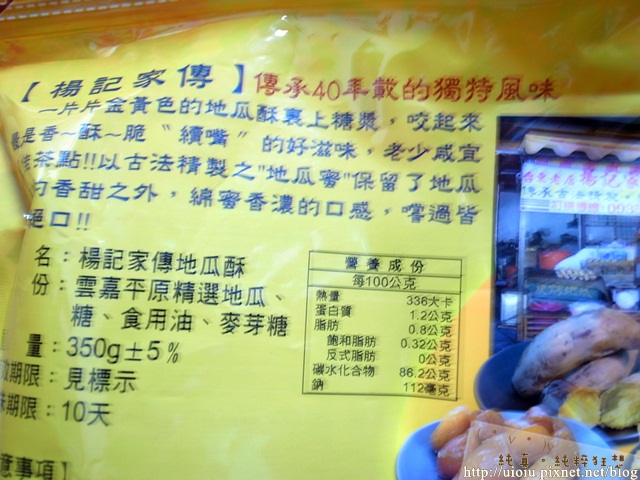 【楊記家傳】傳承40年載的獨特風味
一片片金黃色的地瓜酥裹上糖漿，咬起來
是香~酥~脆〝續嘴〞的好滋味，老少咸宜
茶點!!以古法精製之"地瓜蜜"保留了地瓜
香甜之外，綿蜜香濃的口感，嚐過皆
絕口!!
名：楊記家傳地瓜酥
份：雲嘉平原精選地瓜、
糖、食用油、麥芽糖
量：350g±5%
期限：見標示
期限：10天
意事項】
營養成份
每100公克
熱量 336大卡
蛋白質 1.2公克
脂肪 0.8公克
飽和脂肪 0.32公克
反式脂肪 0公克
碳水化合物 86.2公克
鈉 112毫克
楊記家
純真。純粹狂想
http://uioiu.pixnet.net/blog